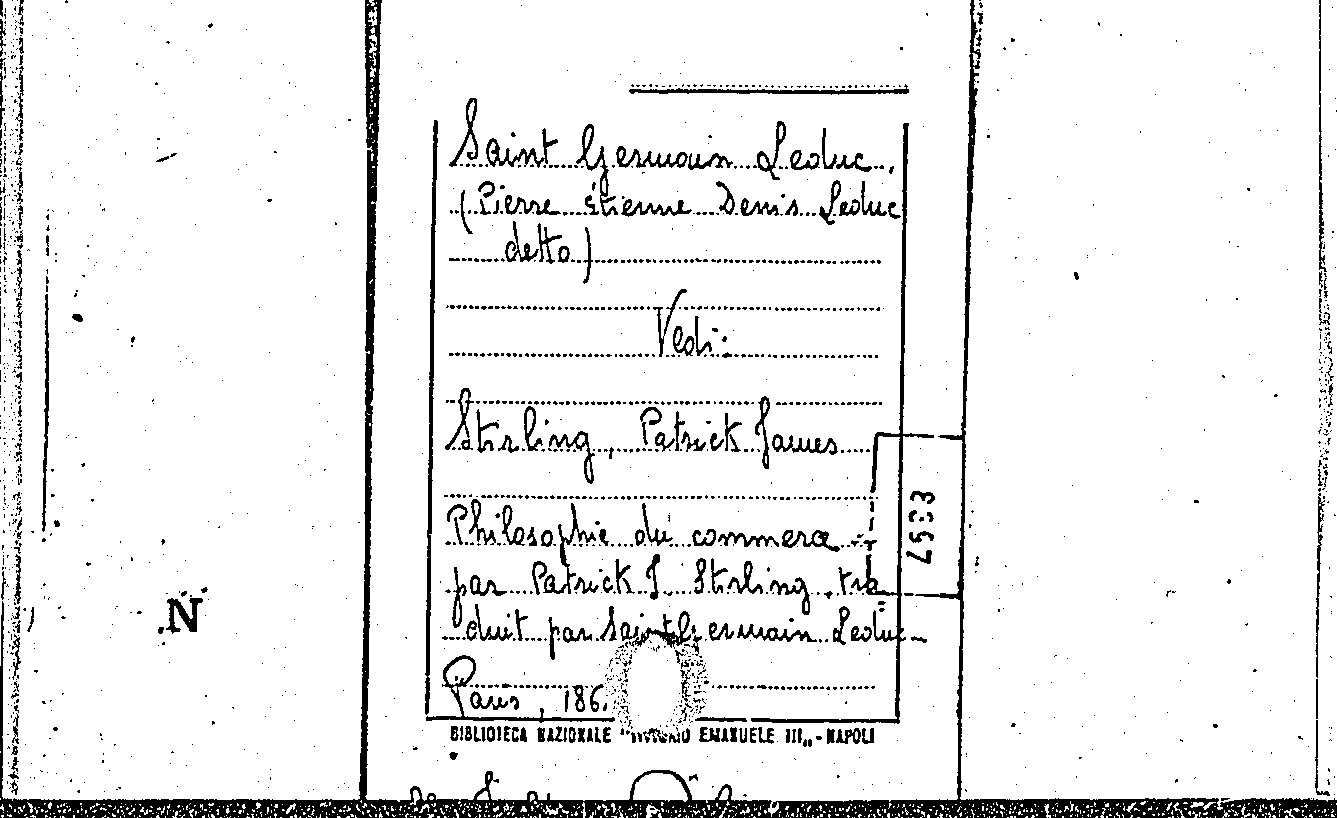 Saint Germain Leduc.
(Pierre Étienne Denis Leduc
detto)
Vedi:
Stirling, Patrick James
Philosophie du commerce
par Patrick J. Stirling, tra
duit par Saint Germain Leduc
Paris, 186
BIBLIOTECA NAZIONALE "VITTORIO EMANUELE III„ - NAPOLI
N